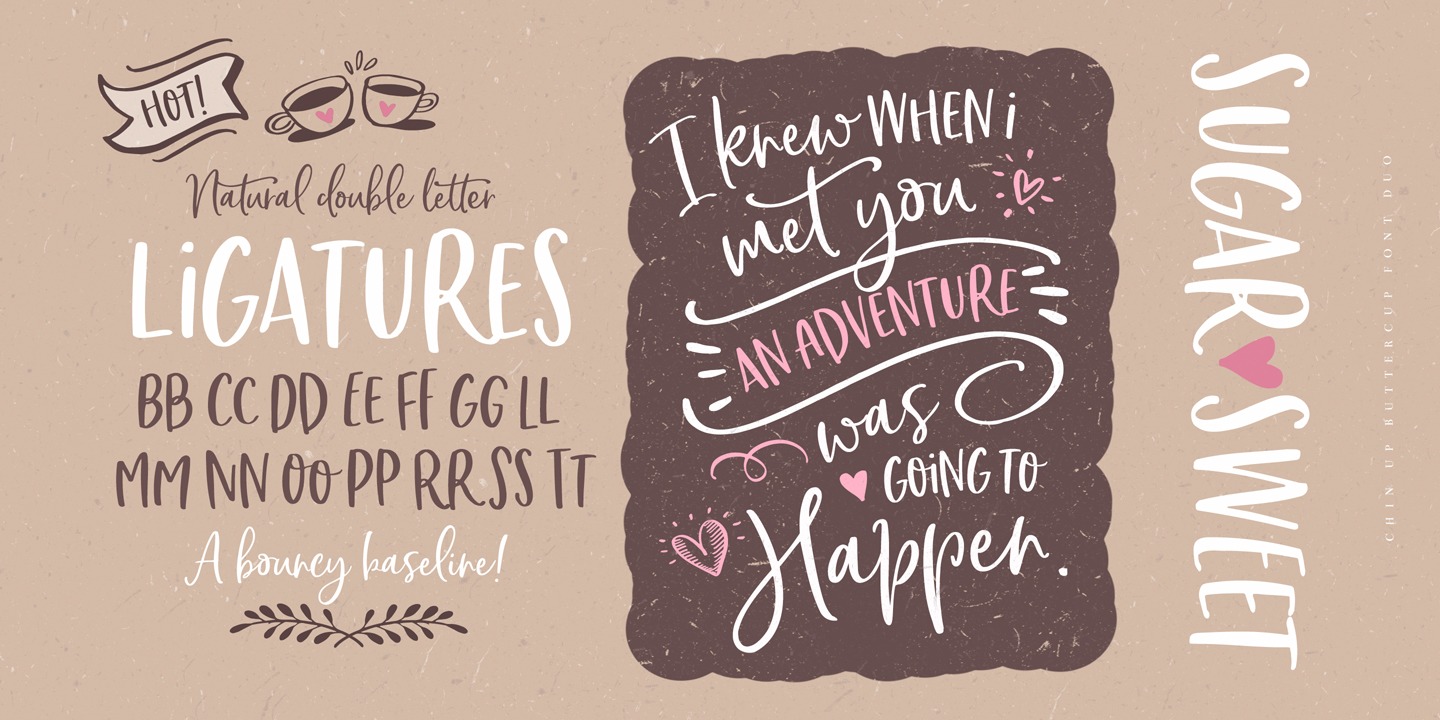 HOT!
Natural double letter
LiGATURES
BB CC DD EE FF GG LL
MM NN OO PP RR SS TT
A bouncy baseline!
I knew WHEN i
met you
AN ADVENTURE
was
GOiNG TO
Happen.
SUGAR SWEET
CHIN UP BUTTERCUP FONT DUO